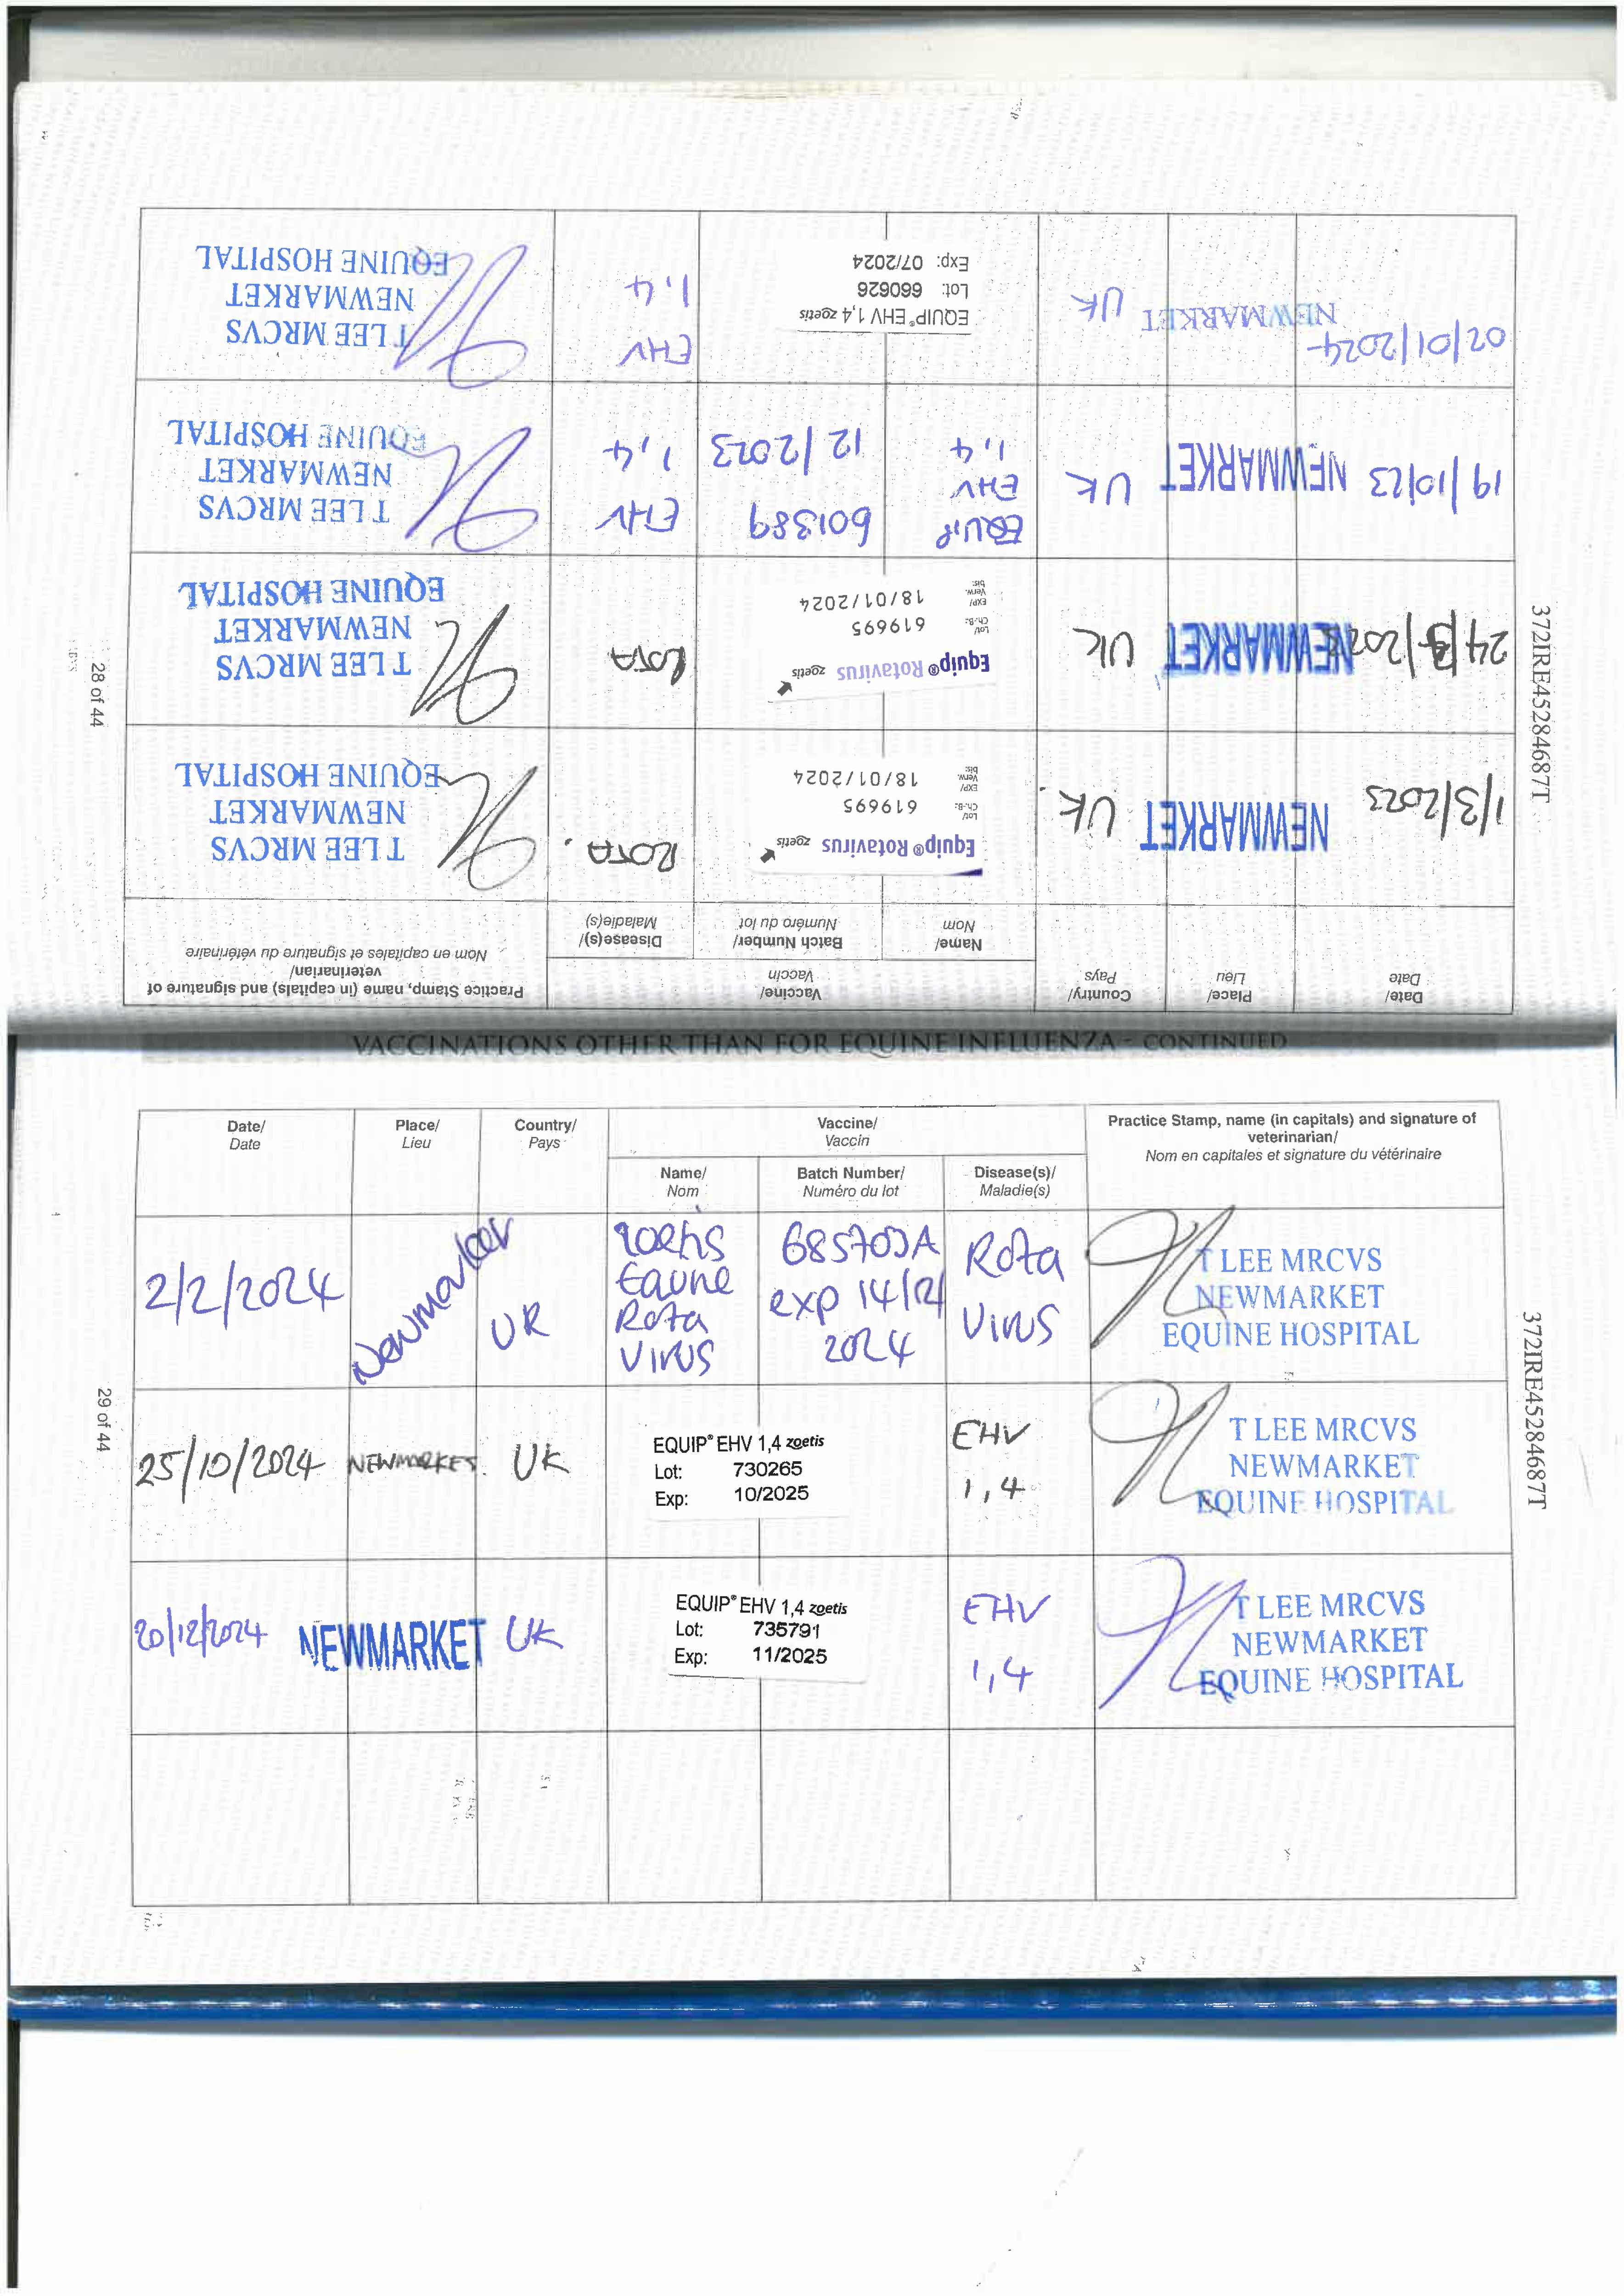 Date/
Date
Place/
Lieu
Country/
Pays
Vaccine/
Vaccin
Name/
Nom
Batch Number/
Numéro du lot
Disease(s)/
Maladie(s)
Practice Stamp, name (in capitals) and signature of
veterinarian/
Nom en capitales et signature du vétérinaire
1/3/2023 NEWMARKET UK
Equip® Rotavirus zoetis
Lot/
Ch.-B.: 619695
EXP/
Verw.
bis: 18/01/2024
ROTA.
T LEE MRCVS
NEWMARKET
EQUINE HOSPITAL
NEWMARKET UK
Equip® Rotavirus zoetis
Lot/
Ch.-B.: 619695
EXP/
Verw.
bis: 18/01/2024
ROTA
T LEE MRCVS
NEWMARKET
EQUINE HOSPITAL
19/10/23 NEWMARKET UK
EQUIP
EHV
1,4
601389
12/2023
EHV
1,4
T LEE MRCVS
NEWMARKET
EQUINE HOSPITAL
02/01/2024 NEWMARKET UK
EQUIP® EHV 1,4 zoetis
Lot: 660626
Exp: 07/2024
EHV
1,4
T LEE MRCVS
NEWMARKET
EQUINE HOSPITAL
28 of 44
372IRE45284687T
VACCINATIONS OTHER THAN FOR EQUINE INFLUENZA - CONTINUED
Date/
Date
Place/
Lieu
Country/
Pays
Vaccine/
Vaccin
Name/
Nom
Batch Number/
Numéro du lot
Disease(s)/
Maladie(s)
Practice Stamp, name (in capitals) and signature of
veterinarian/
Nom en capitales et signature du vétérinaire
2/2/2024 Newmarket UK
Rota
Virus
exp 14/12/
2024
Rota
Virus
T LEE MRCVS
NEWMARKET
EQUINE HOSPITAL
25/10/2024 NEWMARKET. UK
EQUIP® EHV 1,4 zoetis
Lot: 730265
Exp: 10/2025
EHV
1,4
T LEE MRCVS
NEWMARKET
EQUINE HOSPITAL
20/12/2024 NEWMARKET UK
EQUIP® EHV 1,4 zoetis
Lot: 735791
Exp: 11/2025
EHV
1,4
T LEE MRCVS
NEWMARKET
EQUINE HOSPITAL
29 of 44
372IRE45284687T